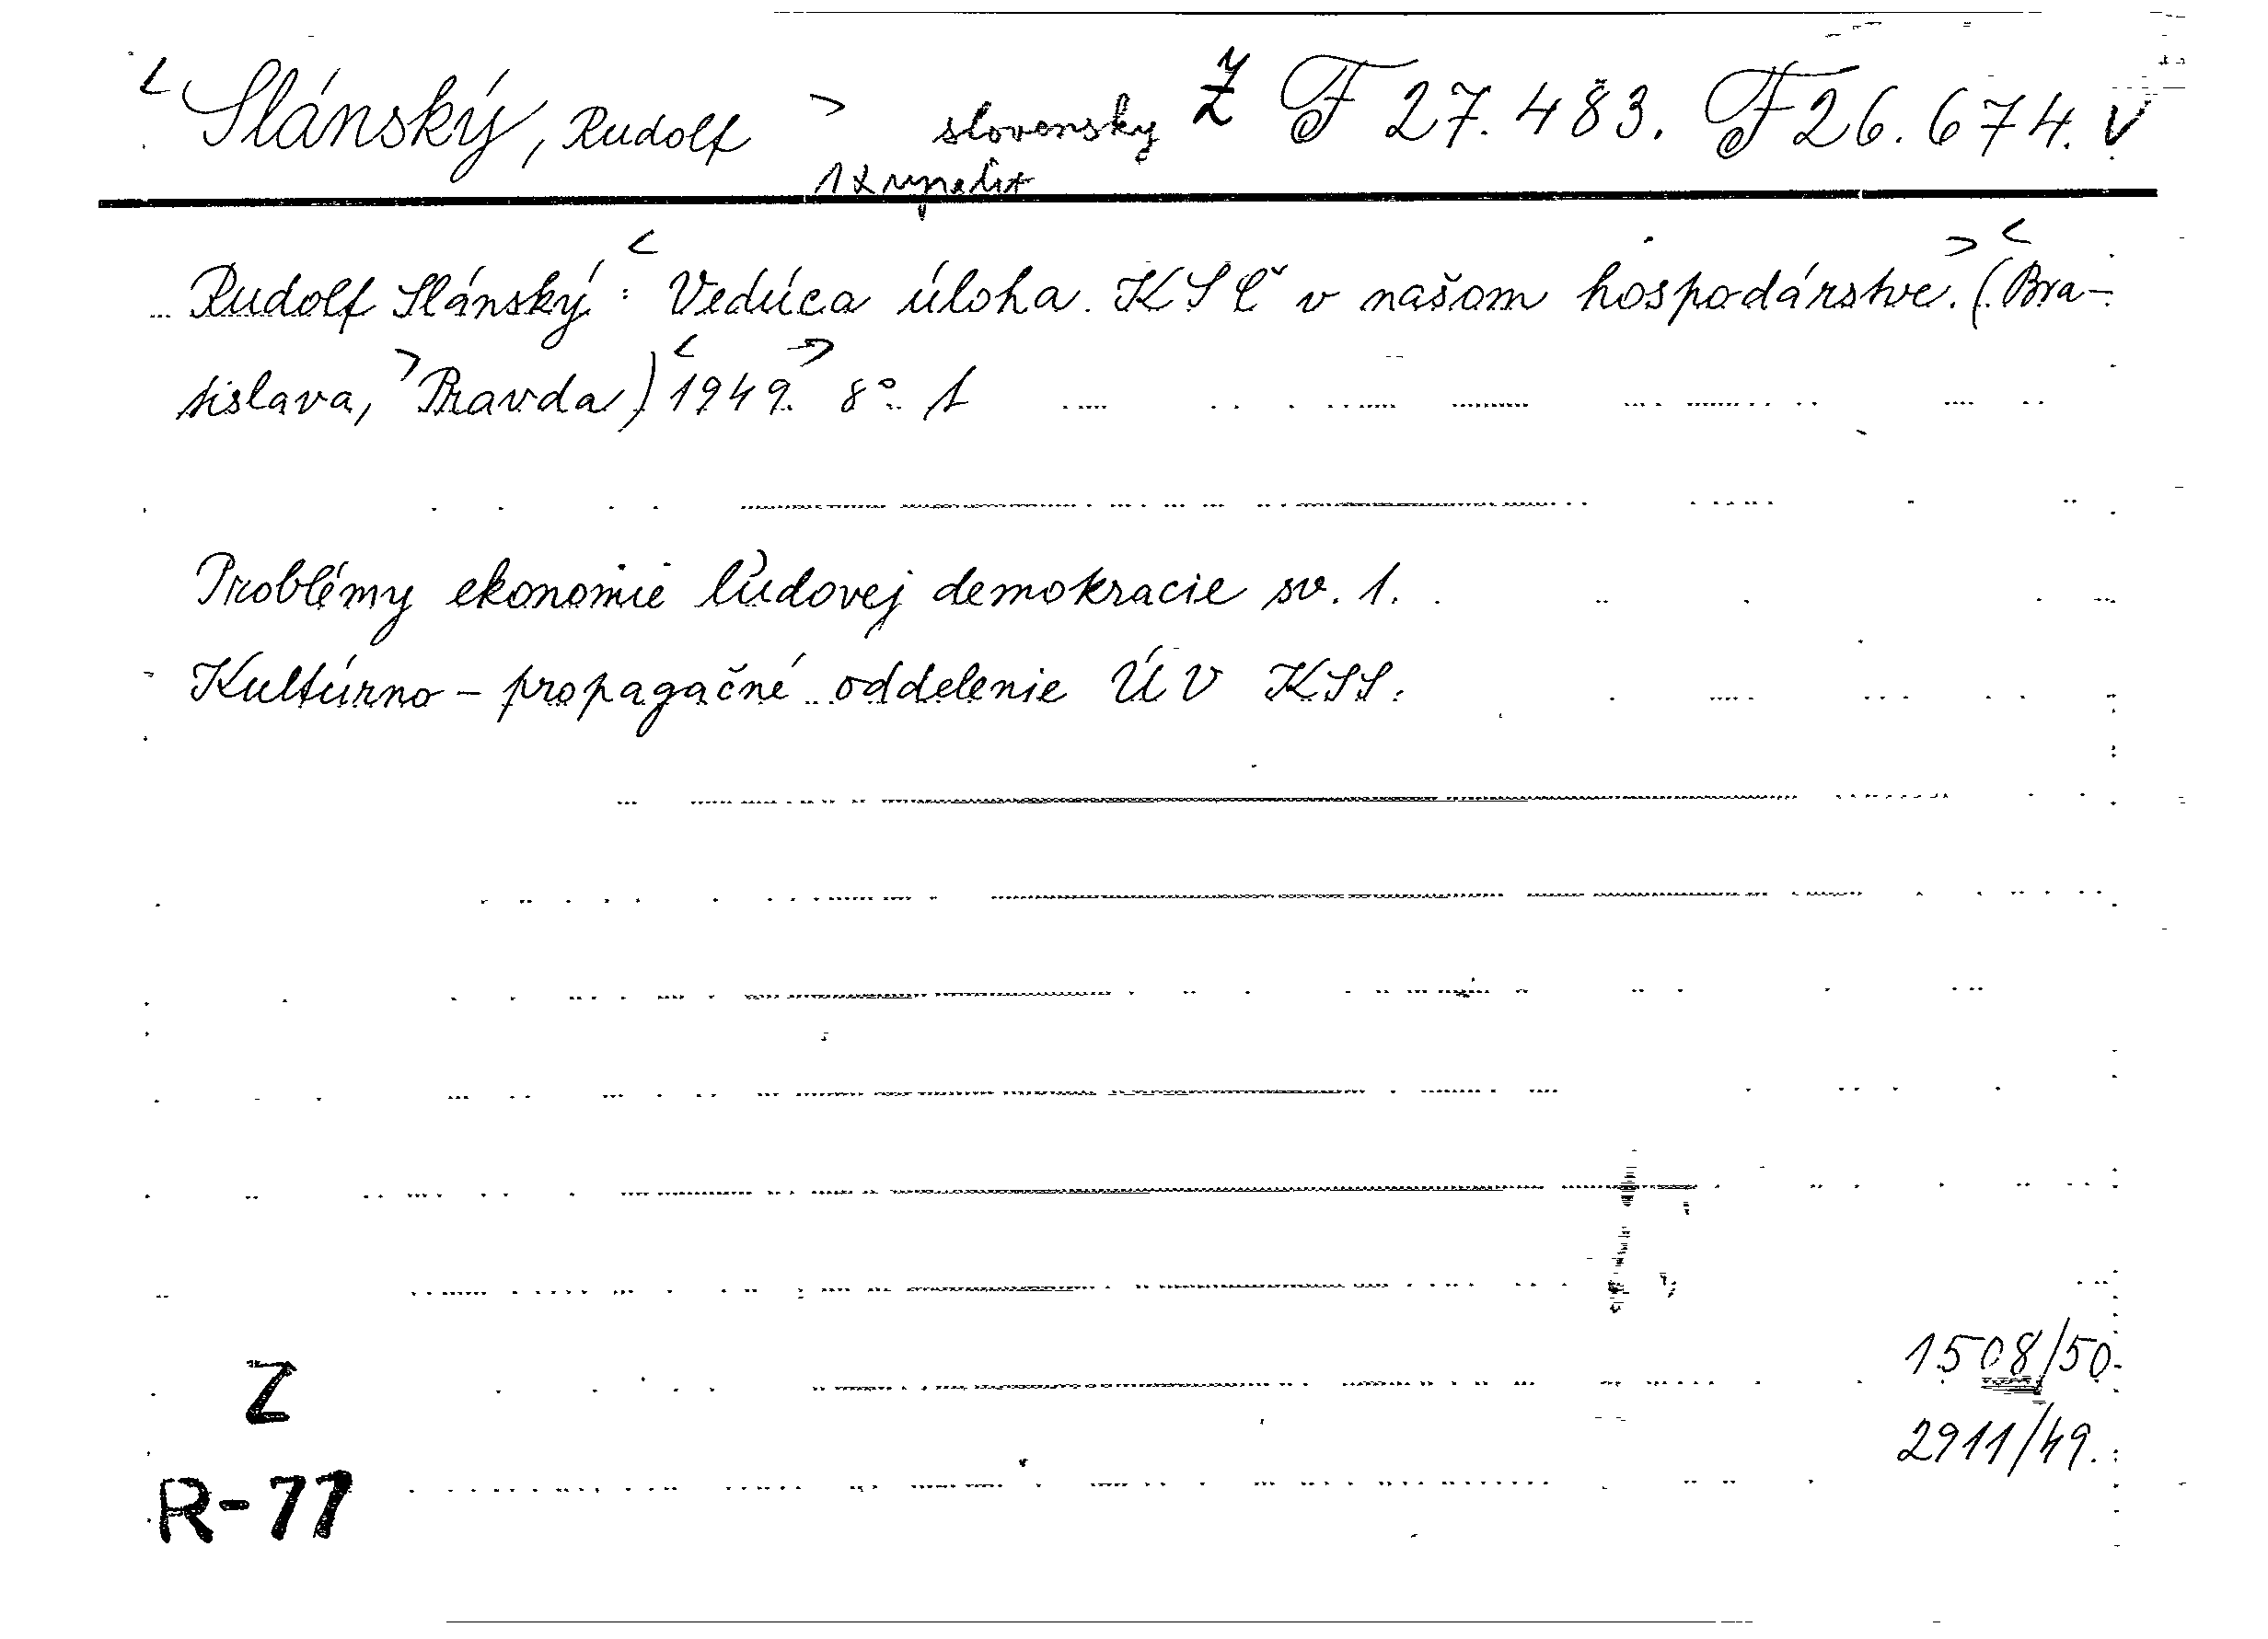 < Slánský, Rudolf > slovensky Ž F 27.483. F 26.674. V
1x
Rudolf Slánský: < Vedúca úloha KSČ v našom hospodárstve. > (< Bra-
tislava, > Pravda) < 1949. > 8° 1
Problémy ekonomie ľudovej demokracie sv. 1.
Kultúrno-propagačné oddelenie ÚV KSS.
1508/50.
Z
2911/49.
R-77